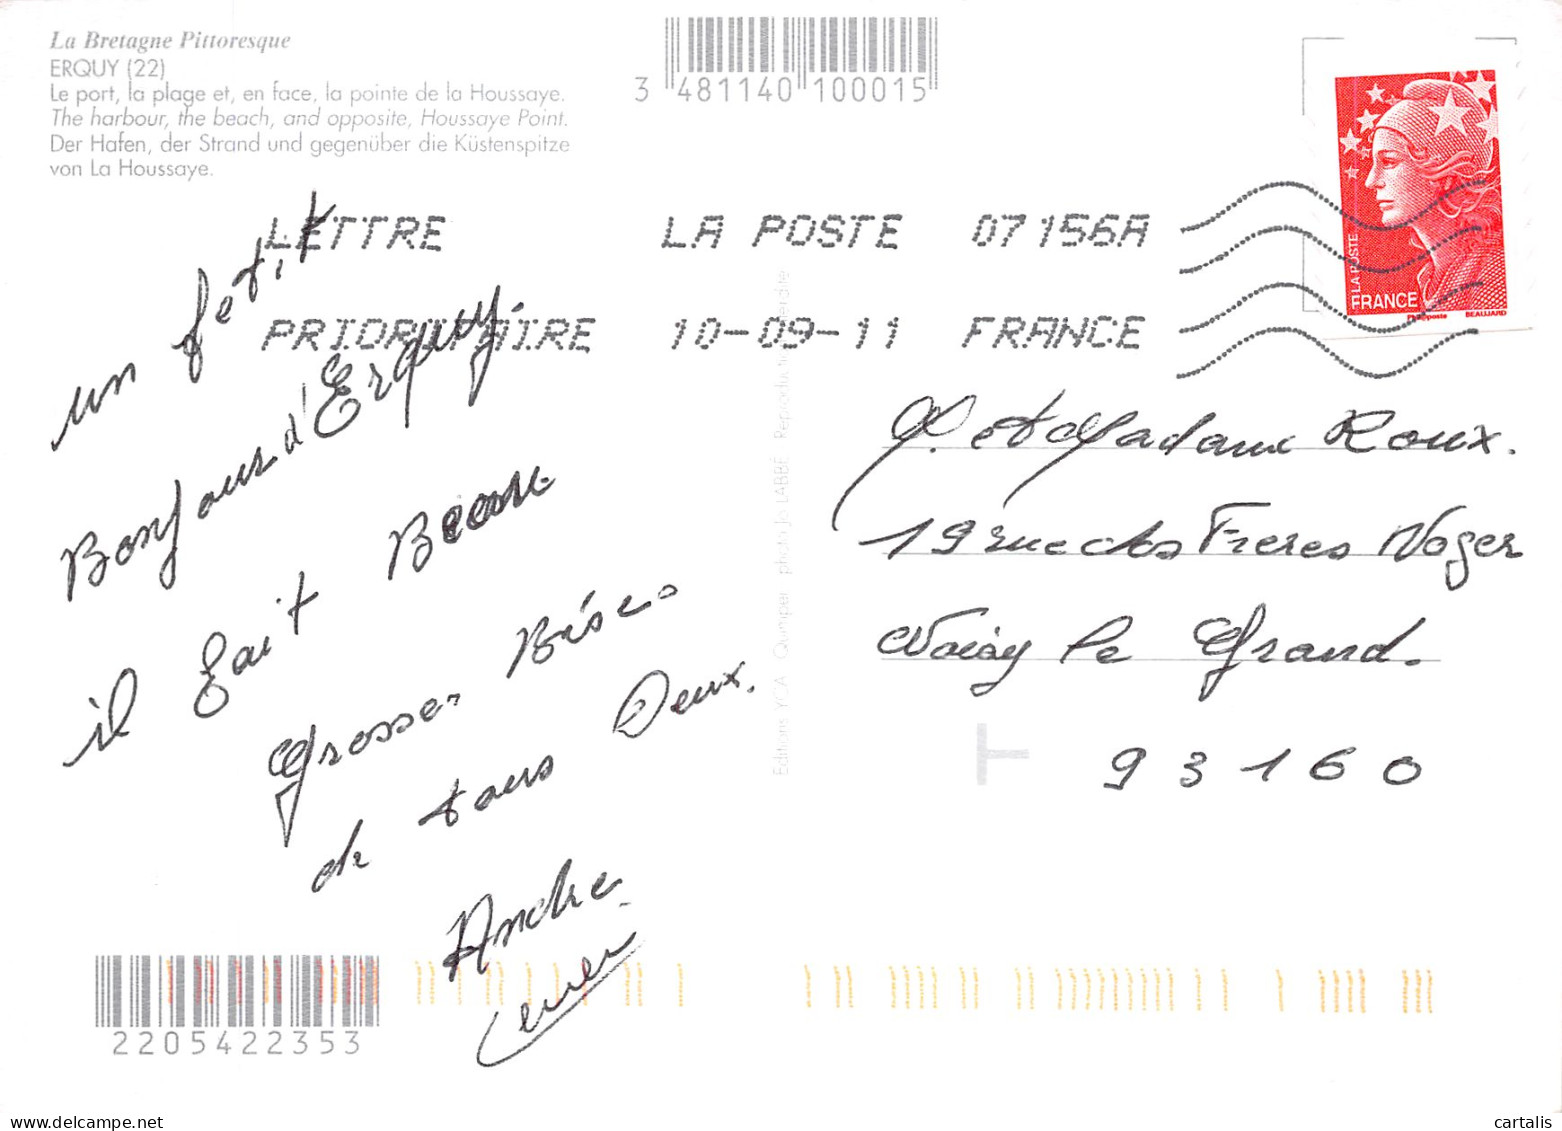 La Bretagne Pittoresque
ERQUY (22)
Le port, la plage et, en face, la pointe de la Houssaye.
The harbour, the beach, and opposite, Houssaye Point.
Der Hafen, der Strand und gegenüber die Küstenspitze
von La Houssaye.
3 481140 100015
LETTRE LA POSTE 07156A
PRIORITAIRE 10-09-11 FRANCE
LA POSTE
FRANCE
Phil@poste BEAUJARD
un petit
Bonjour d'Erquy.
il fait Beau
Grosses Bises
de tous Deux.
Andre
M. et Madame Roux.
19 rue des Freres Noger
Noisy le Grand.
93160
Editions YCA Quimper photo Jo LABBE Reproduction interdite
T
2205422353
cartalis